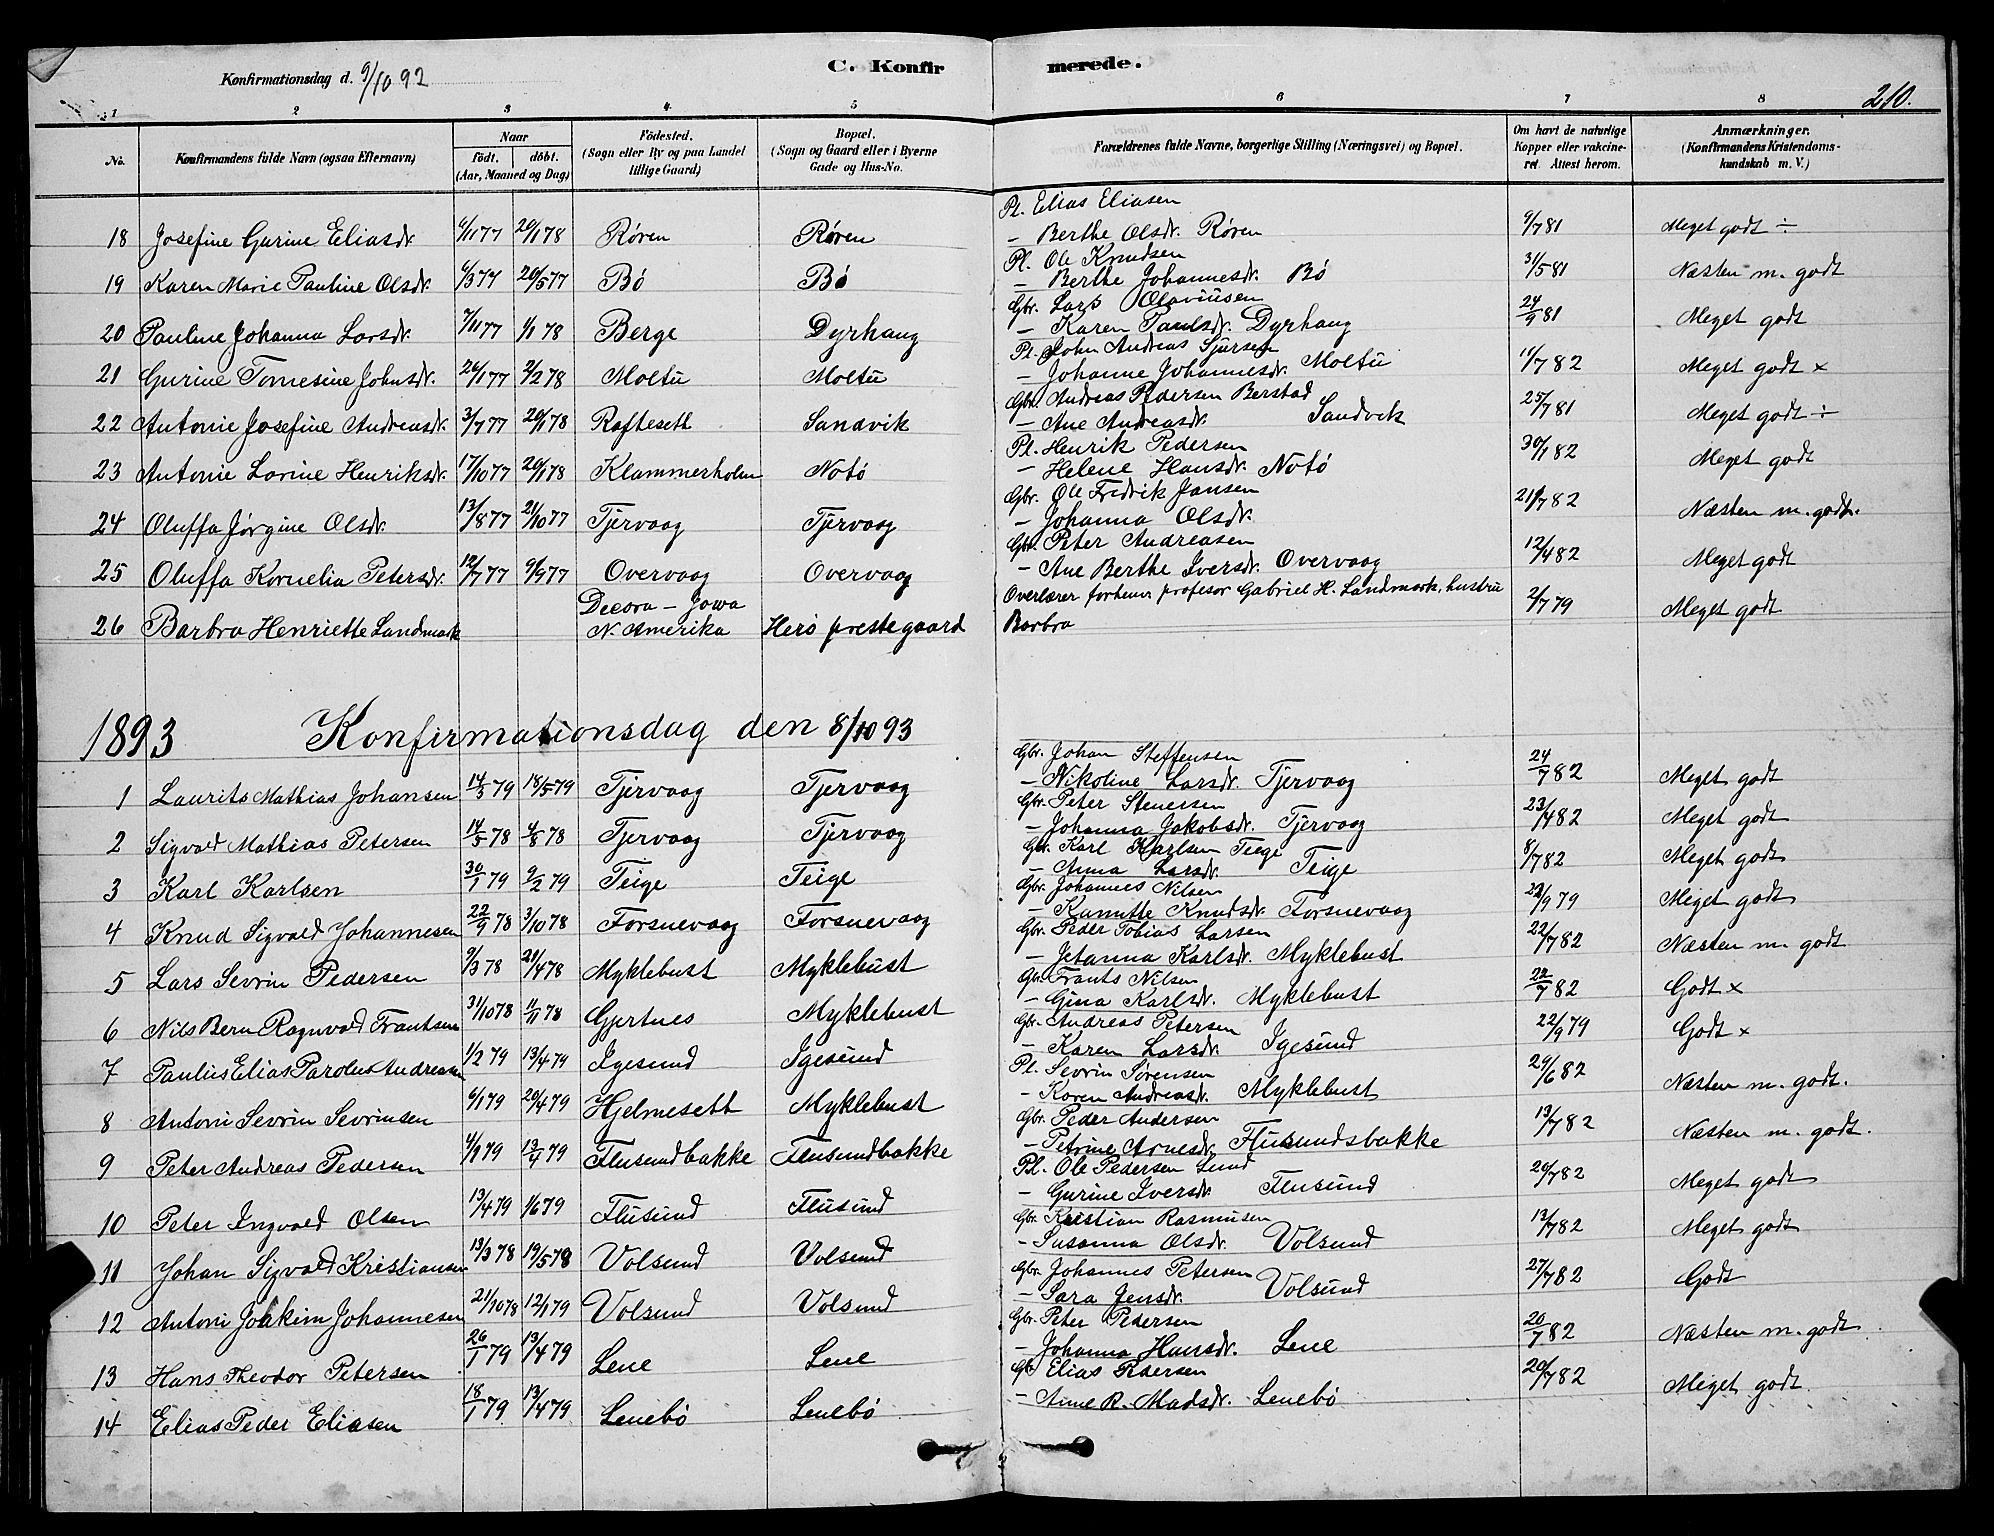 Konfirmationsdag d. 9/10 92
C. Konfirmerede.
210.
1 2 3 4 5 6 7 8
No.
Konfirmandens fulde Navn (ogsaa Efternavn)
Naar
födt. döbt.
(Aar, Maaned og Dag)
Födested.
(Sogn eller By og paa Landet
tillige Gaard)
Bopæl.
(Sogn og Gaard eller i Byerne
Gade og Hus-No.
Forældrenes fulde Navne, borgerlige Stilling (Næringsvei) og Bopæl.
Om havt de naturlige
Kopper eller vakcine-
ret Attest herom.
Anmærkninger.
(Konfirmandens Kristendoms-
kundskab m. V.)
Pl. Elias Eliasen
18 Josefine Gurine Eliasdr. 6/11 77 20/1 78 Røren Røren — Berthe Olsdr. Røren 9/7 81 Meget godt ÷
Pl. Ole Knudsen
19 Karen Marie Pauline Olsdr. 6/3 77 20/5 77 Bö Bö — Berthe Johannesdr. Bö 31/5 81 Næsten m. godt
Gbr. Lars Olaviusen
20 Pauline Johanna Larsdr. 7/11 77 1/1 78 Berge Dyrhaug — Karen Paulsdr. Dyrhaug 24/9 81 Meget godt
Pl. John Andreas Sjursen
21 Gurine Tomesine Johnsdr. 26/1 77 2/2 78 Moltu Moltu — Johanne Johannesdr. Moltu 11/7 82 Meget godt ×
Gbr. Andreas Pedersen Berstad
22 Antonie Josefine Andreasdr. 3/7 77 20/1 78 Rafteseth Sandvik — Ane Andreasdr. Sandvik 25/7 81 Meget godt ÷
Pl. Henrik Pedersen
23 Antonie Lovine Henriksdr. 17/10 77 20/1 78 Klammerholm Notö — Helene Hansdr. Notö 30/1 82 Meget godt
Gbr. Ole Fredrik Jansen
24 Oluffa Jørgine Olsdr. 13/8 77 21/10 77 Tjervaag Tjervaag — Johanna Olsdr. 21/7 82 Næsten m. godt.
Gbr. Peter Andreasen
25 Oluffa Kornelia Petersdr. 12/7 77 9/9 77 Overvaag Overvaag — Ane Berthe Iversdr. Overvaag 12/4 82 Meget godt
Decora — Jowa Overlærer forhenv profesor Gabriel H. Landmark, hustru
26 Barbra Henriette Landmark N. Amerika Herö prestegaard Barbra 2/7 79 Meget godt
1893 Konfirmationsdag den 8/10 93
Gbr. Johan Steffensen
1 Laurits Mathias Johansen 14/3 79 18/5 79 Tjervaag Tjervaag — Nikoline Larsdr. Tjervaag 24/7 82 Meget godt
Gbr. Peter Stenersen
2 Sigvald Mathias Petersen 14/5 78 4/8 78 Tjervaag Tjervaag — Johanna Jakobsdr. Tjervaag 23/4 82 Meget godt
Gbr. Karl Karlsen Teige
3 Karl Karlsen 30/1 79 9/2 79 Teige Teige — Anna Larsdr. Teige 8/7 82 Meget godt
Gbr. Johannes Nilsen
4 Knud Sigvald Johannesen 22/9 78 3/10 78 Forsnevaag Forsnevaag — Kanutte Knudsdr. Forsnevaag 22/9 79 Meget godt
Gbr. Peder Tobias Larsen
5 Lars Sevrin Pedersen 9/3 78 21/4 78 Myklebust Myklebust — Jetanna Karlsdr. Myklebust 22/7 82 Næsten m. godt
Gbr. Frants Nilsen
6 Nils Bern Ragnvald Frantsen 31/10 78 11/11 78 Gjertnes Myklebust — Gina Karlsdr. Myklebust 22/7 82 Godt ×
Gbr. Andreas Petersen
7 Paulus Elias Parolus Andreasen 1/2 79 13/4 79 Igesund Igesund — Karen Larsdr. Igesund 22/9 79 Godt ×
Pl. Sevrin Sörensen
8 Antoni Sevrin Sevrinsen 6/1 79 20/4 79 Hjelmesett Myklebust — Karen Andreasdr. Myklebust 29/6 82 Næsten m. godt.
Gbr. Peder Andersen
9 Peter Andreas Pedersen 4/1 79 13/4 79 Flusundbakke Flusundbakke — Petrine Arnesdr. Flusundsbakke 13/7 82 Næsten m. godt.
Pl. Ole Pedersen Lund
10 Peter Ingvald Olsen 13/4 79 1/6 79 Flusund Flusund — Gurine Iversdr. Flusund 20/7 82 Meget godt
Gbr. Kristian Rasmusen
11 Johan Sigvald Kristiansen 13/3 78 19/5 78 Volsund Volsund — Susanna Olsdr. Volsund 13/7 82 Meget godt
Gbr. Johannes Petersen
12 Antoni Joakim Johannesen 21/10 78 12/1 79 Volsund Volsund — Sara Jensdr. Volsund 27/7 82 Godt
Gbr. Peter Pedersen
13 Hans Theodor Petersen 26/1 79 13/4 79 Lene Lene — Johanna Hansdr. Lene 20/7 82 Næsten m. godt
Gbr. Elias Pedersen
14 Elias Peder Eliasen 18/1 79 13/4 79 Lenebö Lenebö — Anne R. Madsdr. Lenebö 20/7 82 Meget godt.